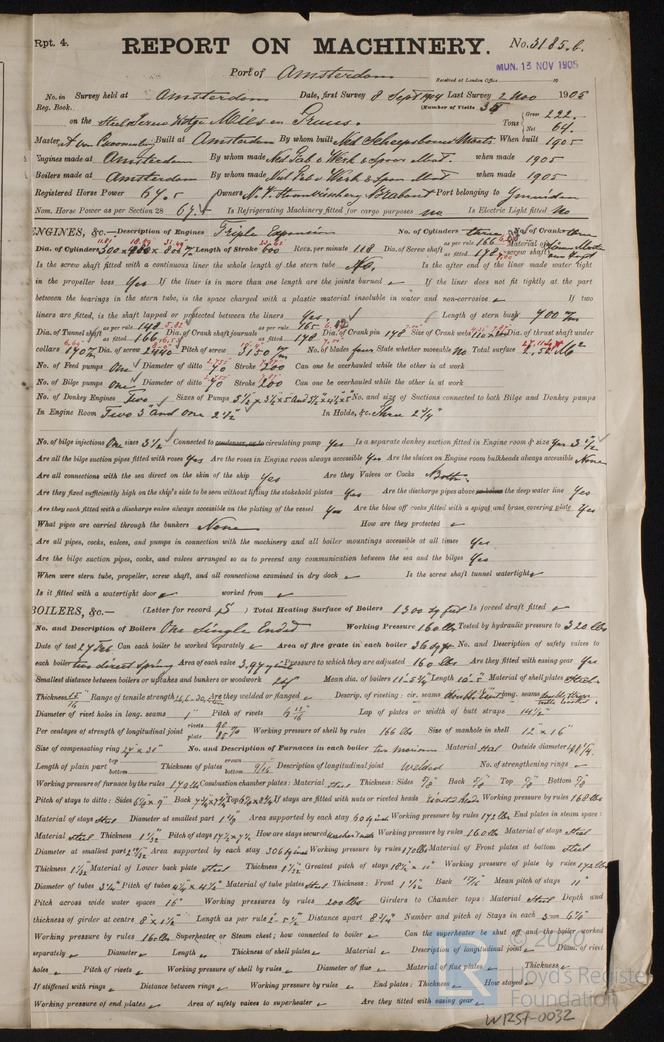 Rpt. 4. REPORT ON MACHINERY. No. 3185.b.
MUN. 13 NOV 1905
Port of Amsterdam Received at London Office 19
No. in Survey held at Amsterdam Date, first Survey 8 Sept 1904 Last Survey 2 Nov 1905
Reg. Book. (Number of Visits 38
on the Steel Screw Tons Gross 222. Net 64.
Master Built at Amsterdam By whom built Ned Scheepsbouw When built 1905
Engines made at Amsterdam By whom made Ned Fab v Werk & Spoor Mat. when made 1905
Boilers made at Amsterdam By whom made Ned Fab v Werk & Spoor Mat when made 1905
Registered Horse Power 67.5 Owners N.V. Port belonging to Ymuiden
Nom. Horse Power as per Section 28 67. Is Refrigerating Machinery fitted for cargo purposes no Is Electric Light fitted No
ENGINES, &c.— Description of Engines Triple Expansion No. of Cylinders three No. of Cranks three
Dia. of Cylinders Length of Stroke 600 Revs. per minute 118 Dia. of Screw shaft as per rule 166 as fitted 178 Material of screw shaft
Is the screw shaft fitted with a continuous liner the whole length of the stern tube No. Is the after end of the liner made water tight
in the propeller boss Yes If the liner is in more than one length are the joints burned If the liner does not fit tightly at the part
between the bearings in the stern tube, is the space charged with a plastic material insoluble in water and non-corrosive If two
liners are fitted, is the shaft lapped or protected between the liners Yes. Length of stern bush 700
Dia. of Tunnel shaft as per rule 148 as fitted 166 Dia. of Crank shaft journals as per rule 165 as fitted 178 Dia. of Crank pin 178 Size of Crank webs Dia. of thrust shaft under
collars 170 Dia. of screw 2440 Pitch of screw 3150 No. of blades four State whether moveable No Total surface 2,52 M²
No. of Feed pumps One Diameter of ditto 70 Stroke 200 Can one be overhauled while the other is at work
No. of Bilge pumps one Diameter of ditto 70 Stroke 200 Can one be overhauled while the other is at work
No. of Donkey Engines Two Sizes of Pumps No. and size of Suctions connected to both Bilge and Donkey pumps
In Engine Room Two 3 and one 2½" In Holds, &c. Three 2¼"
No. of bilge injections One sizes 3½ Connected to condenser, or to circulating pump Yes Is a separate donkey suction fitted in Engine room & size Yes 3½
Are all the bilge suction pipes fitted with roses Yes Are the roses in Engine room always accessible Yes Are the sluices on Engine room bulkheads always accessible None
Are all connections with the sea direct on the skin of the ship Yes Are they Valves or Cocks Both.
Are they fixed sufficiently high on the ship's side to be seen without lifting the stokehold plates Yes Are the discharge pipes above or below the deep water line Yes
Are they each fitted with a discharge valve always accessible on the plating of the vessel Yes Are the blow off cocks fitted with a spigot and brass covering plate Yes
What pipes are carried through the bunkers None How are they protected
Are all pipes, cocks, valves, and pumps in connection with the machinery and all boiler mountings accessible at all times Yes
Are the bilge suction pipes, cocks, and valves arranged so as to prevent any communication between the sea and the bilges Yes
When were stern tube, propeller, screw shaft, and all connections examined in dry dock Is the screw shaft tunnel watertight
Is it fitted with a watertight door worked from
BOILERS, &c.— (Letter for record S) Total Heating Surface of Boilers 1300 sq feet Is forced draft fitted
No. and Description of Boilers One Single Ended Working Pressure 160 lbs Tested by hydraulic pressure to 320 lbs
Date of test 27 Feb Can each boiler be worked separately Area of fire grate in each boiler 36 sq ft No. and Description of safety valves to
each boiler two direct spring Area of each valve 3.97 Pressure to which they are adjusted 160 lbs Are they fitted with easing gear Yes
Smallest distance between boilers or uptakes and bunkers or woodwork Mean dia. of boilers Length 10-5 Material of shell plates Steel
Thickness 15/16 Range of tensile strength Are they welded or flanged Descrip. of riveting: cir. seams double long. seams
Diameter of rivet holes in long. seams 1" Pitch of rivets Lap of plates or width of butt straps 14½"
Per centages of strength of longitudinal joint rivets 90 plate 85 Working pressure of shell by rules 166 lbs Size of manhole in shell 12 x 16"
Size of compensating ring 27 x 31" No. and Description of Furnaces in each boiler two Morison Material Steel Outside diameter
Length of plain part top bottom Thickness of plates crown bottom 9/16 Description of longitudinal joint Welded No. of strengthening rings
Working pressure of furnace by the rules 170 lbs Combustion chamber plates: Material Steel Thickness: Sides 5/8" Back 5/8" Top 5/8" Bottom
Pitch of stays to ditto: Sides Back Top If stays are fitted with nuts or riveted heads Working pressure by rules 168 lbs
Material of stays Steel Diameter at smallest part Area supported by each stay 60 Working pressure by rules 172 lbs End plates in steam space:
Material steel Thickness Pitch of stays How are stays secured Working pressure by rules 160 lbs Material of stays Steel
Diameter at smallest part Area supported by each stay 306 Working pressure by rules 170 lbs Material of Front plates at bottom Steel
Thickness Material of Lower back plate Steel Thickness Greatest pitch of stays Working pressure of plate by rules 172 lbs
Diameter of tubes 3¼ Pitch of tubes 4½ x 4½" Material of tube plates Steel Thickness: Front Back Mean pitch of stays 11"
Pitch across wide water spaces 16" Working pressures by rules 200 lbs Girders to Chamber tops: Material Steel Depth and
thickness of girder at centre Length as per rule Distance apart 8¾" Number and pitch of Stays in each
Working pressure by rules 160 lbs Superheater or Steam chest; how connected to boiler Can the superheater be shut off and the boiler worked
separately Diameter Length Thickness of shell plates Material Description of longitudinal joint Diam. of rivet
holes Pitch of rivets Working pressure of shell by rules Diameter of flue Material of flue plates Thickness
If stiffened with rings Distance between rings Working pressure by rules End plates: Thickness How stayed
Working pressure of end plates Area of safety valves to superheater Are they fitted with easing gear
© 2020
Lloyd's Register
Foundation
W1257-0032